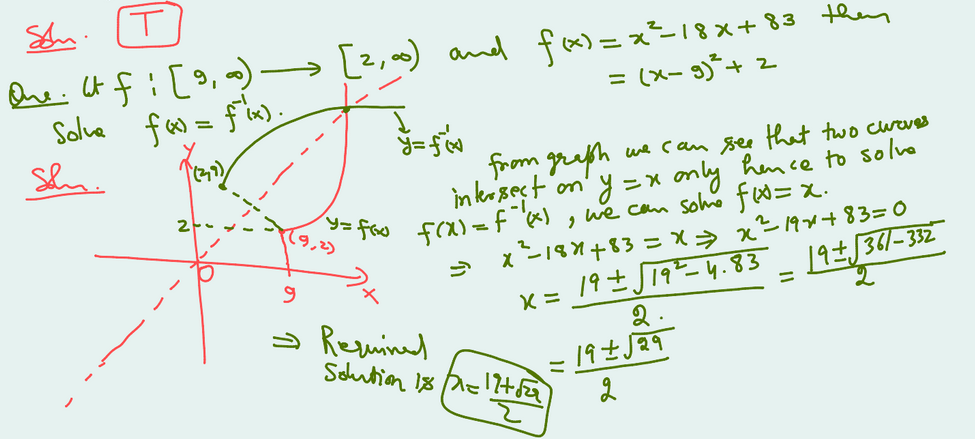 Soln. T
Que. let f : [9, ∞) → [2, ∞) and f(x) = x²-18x+83 then
= (x-9)²+2
Solve f(x) = f⁻¹(x).
Soln.
Y
(2,9)
y=f⁻¹(x)
2
y=f(x)
(9,2)
O
9
X
from graph we can see that two curves
intersect on y=x only hence to solve
f(x)=f⁻¹(x), we can solve f(x)=x.
⇒ x²-18x+83=x ⇒ x²-19x+83=0
x = (19±√(19²-4.83))/2. = (19±√(361-332))/2
= (19±√29)/2
⇒ Required
Solution is x=(19+√29)/2